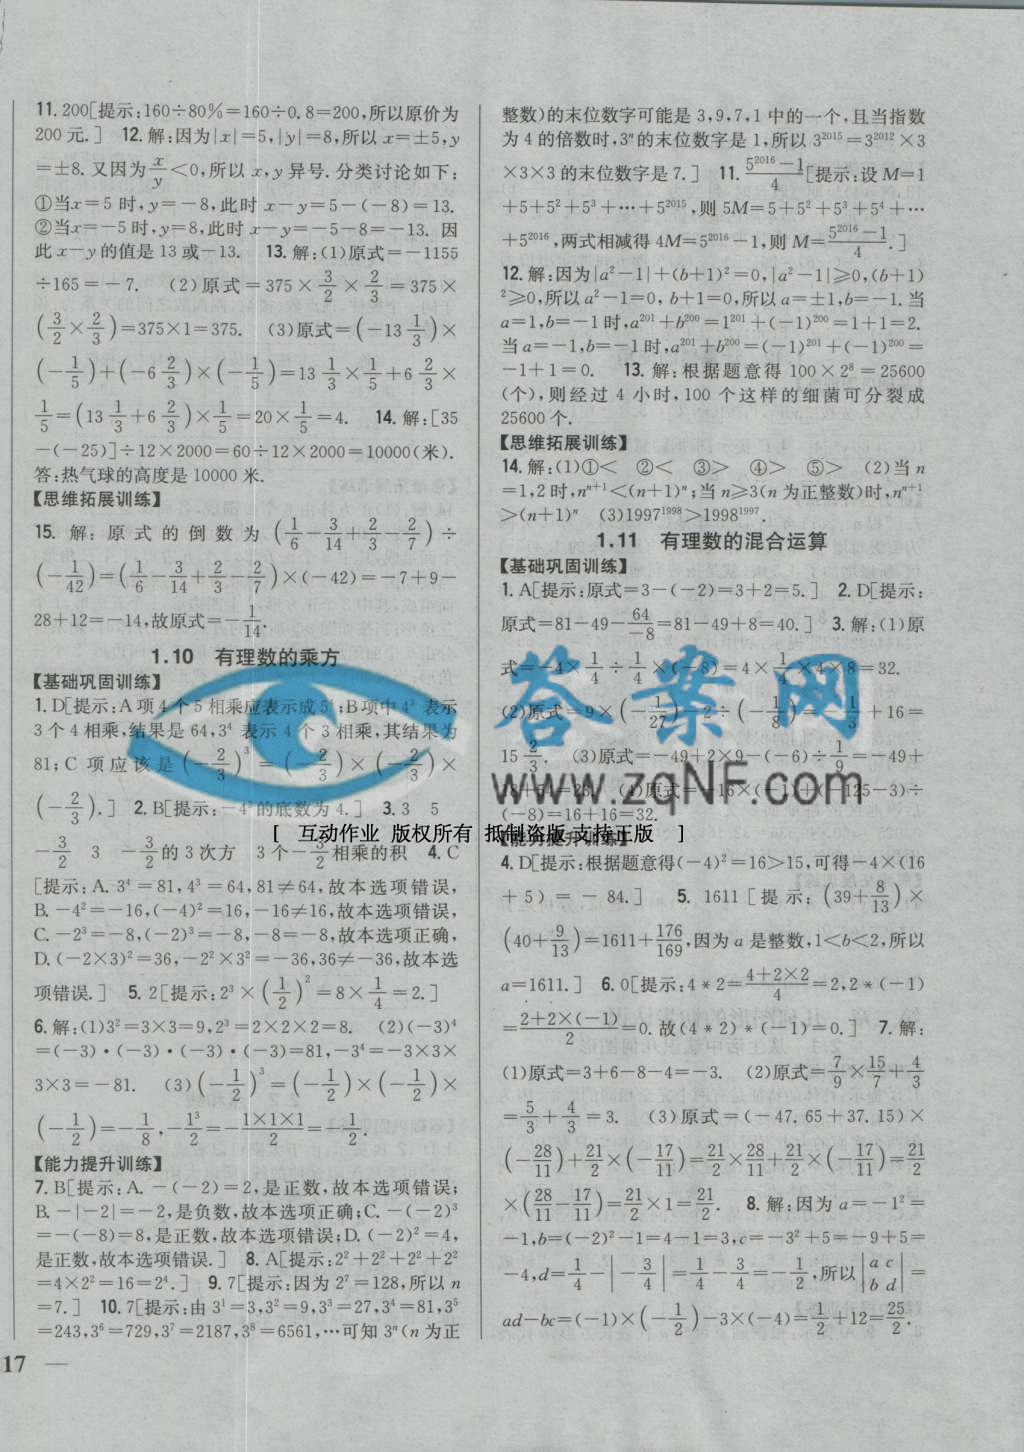 11. 200[提示:160÷80%=160÷0.8=200,所以原价为
200元.] 12. 解:因为|x|=5,|y|=8,所以x=±5,y
=±8. 又因为x/y<0,所以x,y异号. 分类讨论如下:
①当x=5时,y=-8,此时x-y=5-(-8)=13.
②当x=-5时,y=8,此时x-y=-5-8=-13. 因
此x-y的值是13或-13. 13. 解:(1)原式=-1155
÷165=-7. (2)原式=375×3/2×2/3=375×
(3/2×2/3)=375×1=375. (3)原式=(-13 1/3)×
(-1/5)+(-6 2/3)×(-1/5)=13 1/3×1/5+6 2/3×
1/5=(13 1/3+6 2/3)×1/5=20×1/5=4. 14. 解:[35
-(-25)]÷12×2000=60÷12×2000=10000(米).
答:热气球的高度是10000米.
【思维拓展训练】
15. 解:原式的倒数为(1/6-3/14+2/3-2/7)÷
(-1/42)=(1/6-3/14+2/3-2/7)×(-42)=-7+9-
28+12=-14,故原式=-1/14.
1.10 有理数的乘方
【基础巩固训练】
1. D[提示:A项4个5相乘应表示成5⁴;B项中4³表示
3个4相乘,结果是64,3⁴表示4个3相乘,其结果为
81;C项应该是(-2/3)³=(-2/3)×(-2/3)×
(-2/3).] 2. B[提示:-4³的底数为4.] 3. 3 5
-3/2 3 -3/2的3次方 3个-3/2相乘的积 4. C
[提示:A. 3⁴=81,4³=64,81≠64,故本选项错误,
B. -4²=-16,(-4)²=16,-16≠16,故本选项错误,
C. -2³=-8,(-2)³=-8,-8=-8,故本选项正确,
D. (-2×3)²=36,-2²×3²=-36,36≠-36,故本选
项错误.] 5. 2[提示:2³×(1/2)²=8×1/4=2.]
6. 解:(1)3²=3×3=9,2³=2×2×2=8. (2)(-3)⁴
=(-3)·(-3)·(-3)·(-3)=81,-3⁴=-3×3×
3×3=-81. (3)(-1/2)³=(-1/2)×(-1/2)×
(-1/2)=-1/8,-1³/2=-1×1×1/2=-1/2.
【能力提升训练】
7. B[提示:A. -(-2)=2,是正数,故本选项错误;
B. -|-2|=-2,是负数,故本选项正确;C. -(-2)³
=-(-8)=8,是正数,故本选项错误;D. (-2)²=4,
是正数,故本选项错误.] 8. A[提示:2²+2²+2²+2²
=4×2²=16=2⁴.] 9. 7[提示:因为2⁷=128,所以n
=7.] 10. 7[提示:由3¹=3,3²=9,3³=27,3⁴=81,3⁵
=243,3⁶=729,3⁷=2187,3⁸=6561,…可知3ⁿ(n为正
17
整数)的末位数字可能是3,9,7,1中的一个,且当指数
为4的倍数时,3ⁿ的末位数字是1,所以3²⁰¹⁵=3²⁰¹²×3
×3×3的末位数字是7.] 11. 5²⁰¹⁶-1/4[提示:设M=1
+5+5²+5³+…+5²⁰¹⁵,则5M=5+5²+5³+5⁴+…
+5²⁰¹⁶,两式相减得4M=5²⁰¹⁶-1,则M=5²⁰¹⁶-1/4.]
12. 解:因为|a²-1|+(b+1)²=0,|a²-1|≥0,(b+1)
²≥0,所以a²-1=0,b+1=0,所以a=±1,b=-1. 当
a=1,b=-1时,a²⁰¹+b²⁰⁰=1²⁰¹+(-1)²⁰⁰=1+1=2.
当a=-1,b=-1时,a²⁰¹+b²⁰⁰=(-1)²⁰¹+(-1)²⁰⁰=
-1+1=0. 13. 解:根据题意得100×2⁸=25600
(个),则经过4小时,100个这样的细菌可分裂成
25600个.
【思维拓展训练】
14. 解:(1)①< ②< ③> ④> ⑤> (2)当n
=1,2时,nⁿ⁺¹<(n+1)ⁿ;当n≥3(n为正整数)时,nⁿ⁺¹
>(n+1)ⁿ (3)1997¹⁹⁹⁸>1998¹⁹⁹⁷.
1.11 有理数的混合运算
【基础巩固训练】
1. A[提示:原式=3-(-2)=3+2=5.] 2. D[提示:
原式=81-49-64/-8=81-49+8=40.] 3. 解:(1)原
式=-4×1/4÷1/4×(-8)=4×1/4×4×8=32.
(2)原式=9×(-1/27)-2÷(-1/8)=-1/3+16=
15 2/3. (3)原式=-49+2×9-(-6)÷1/9=-49+
18+54=23. 原式=-16×(-1)+(-125-3)÷
(-8)=16+16=32.
【能力提升训练】
4. D[提示:根据题意得(-4)²=16>15,可得-4×(16
+5)=-84.] 5. 1611[提示:(39+8/13)×
(40+9/13)=1611+176/169,因为a是整数,1<b<2,所以
a=1611.] 6. 0[提示:4*2=4+2×2/4=2,2*(-1)
=2+2×(-1)/2=0. 故(4*2)*(-1)=0. 7. 解:
(1)原式=3+6-8-4=-3. (2)原式=7/9×15/7+4/3
=5/3+4/3=3. (3)原式=(-47.65+37.15)×
(-28/11)+21/2×(-17/11)=21/2×28/11+21/2×(-17/11)=21/2
×(28/11-17/11)=21/2×1=21/2. 8. 解:因为a=-1²=
-1,b=(-2)²-1=4-1=3,c=-3²+5=-9+5=
-4,d=1/4-|-3/4|=1/4-3/4=-1/2,所以|a c b d|=
ad-bc=(-1)×(-1/2)-3×(-4)=1/2+12=25/2.
答案网
www.zqNF.com
[ 互动作业 版权所有 抵制盗版 支持正版 ]